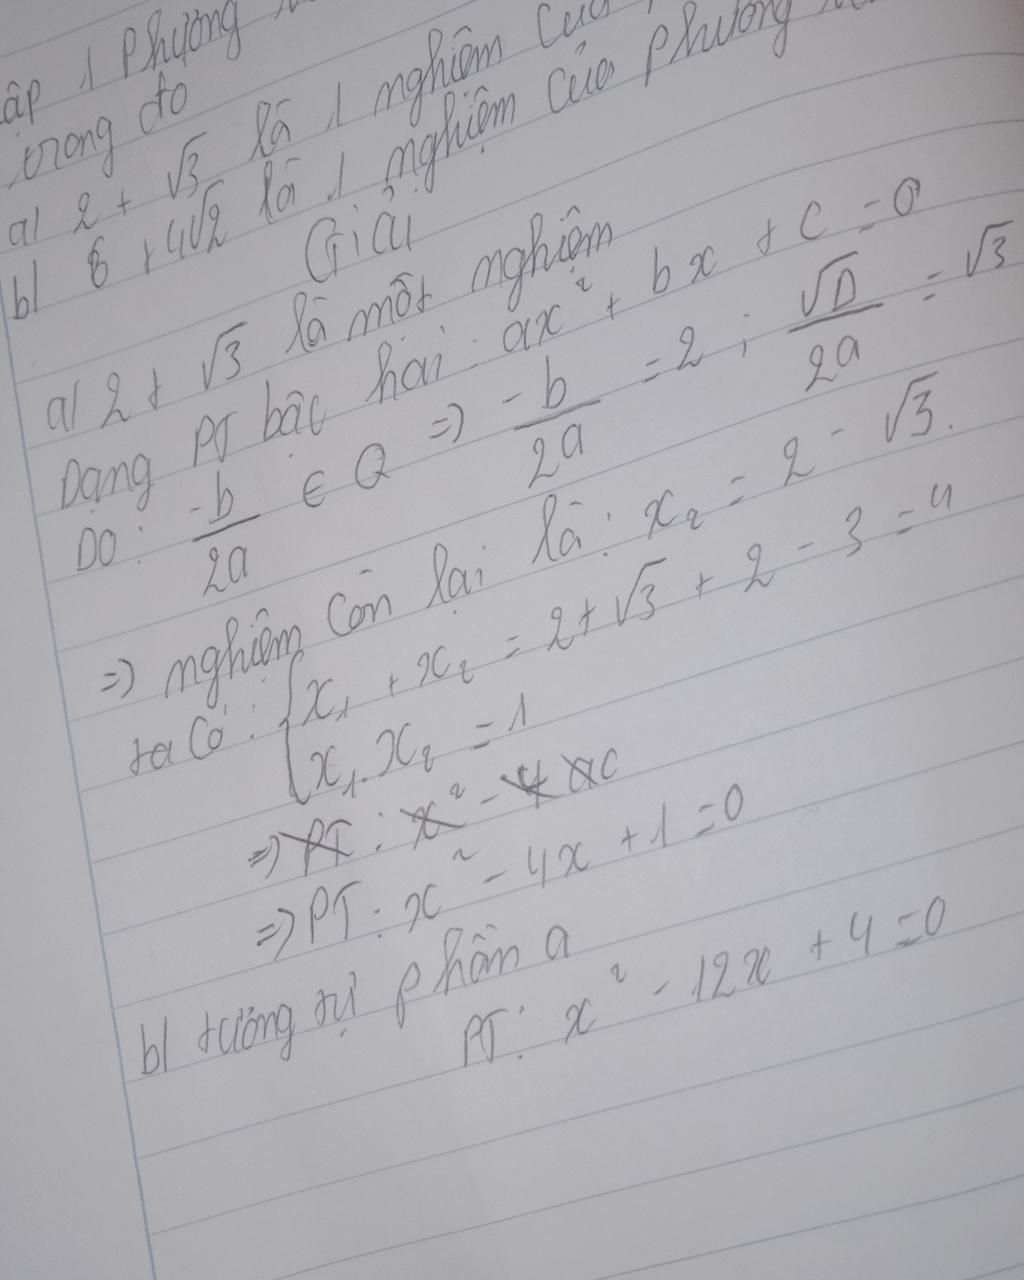 ập 1 phương
trong đó
a) 2 + √3 là 1 nghiệm của
b) 6 + 4√2 là 1 nghiệm của phương
Giải
a) 2 + √3 là một nghiệm
Dạng PT bậc hai: ax² + bx + c = 0
Do: -b/2a ∈ Q => -b/2a = 2 ; √D/2a = √3
=> nghiệm còn lại là: x₂ = 2 - √3.
ta có: { x₁ + x₂ = 2 + √3 + 2 - 3 = 4
x₁. x₂ = 1
=> PT: x² - 4
=> PT: x² - 4x + 1 = 0
b) tương tự phần a
PT: x² - 12x + 4 = 0